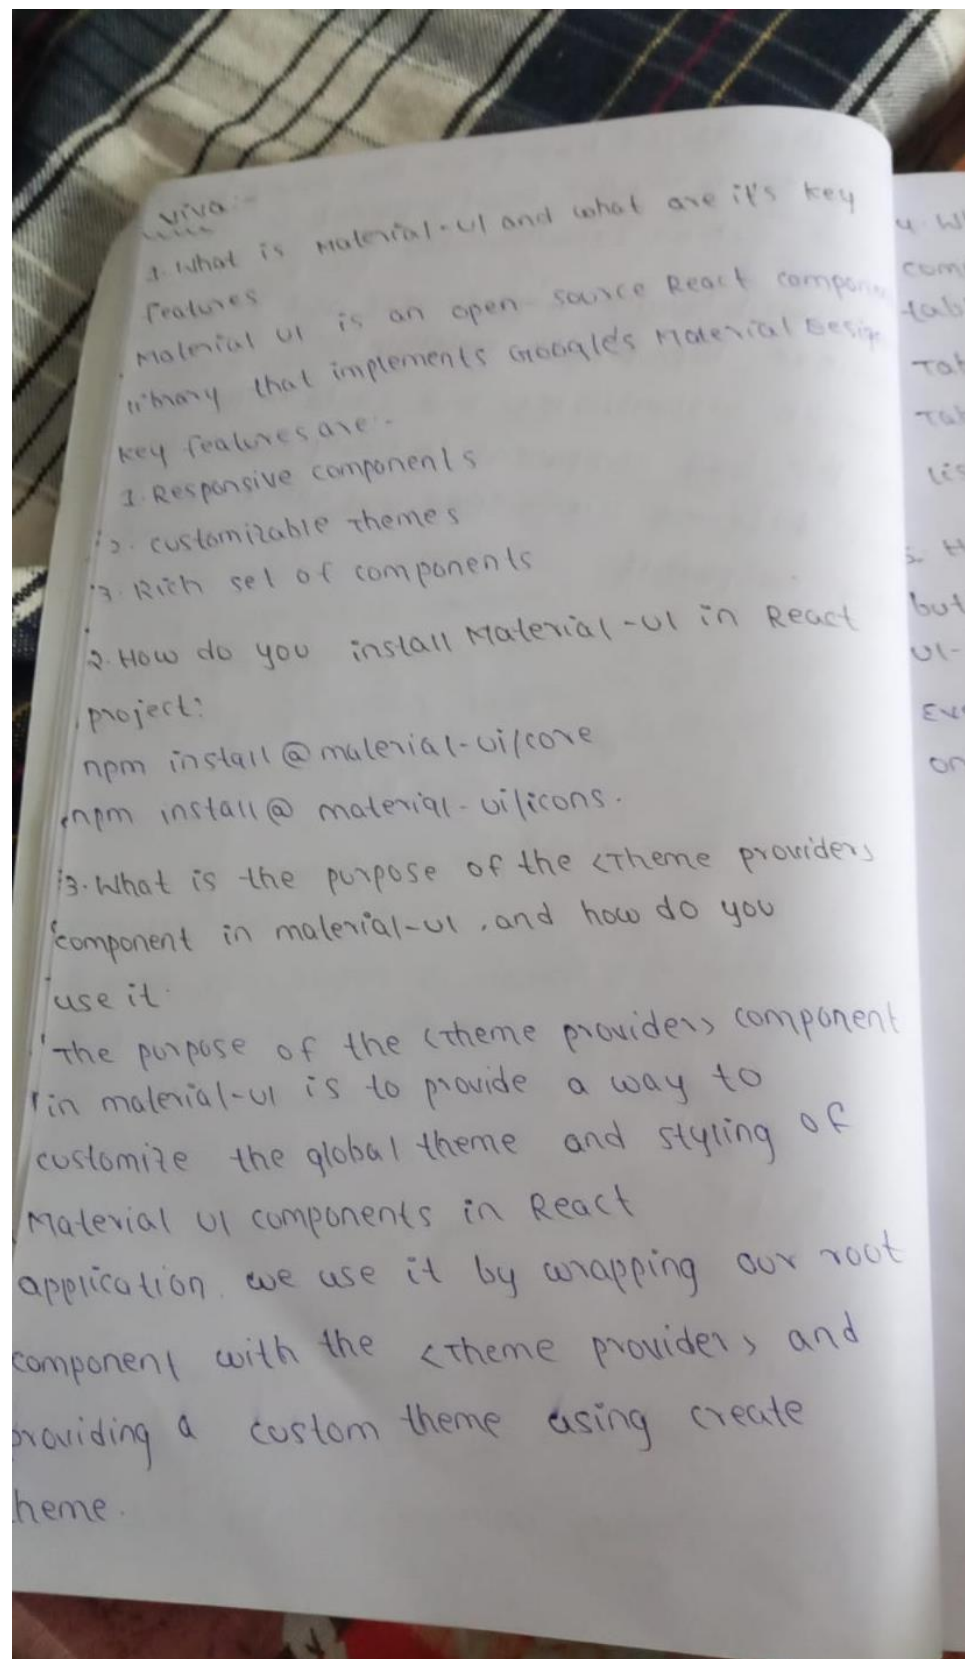 viva:-
1. What is Material-UI and what are it's key
features
Material UI is an open-source React
library that implements Google's Material Design
key features are:-
1. Responsive components
2. customizable themes
3. Rich set of components
2. How do you install Material-UI in React
project:
npm install @material-ui/core
npm install @ material-ui/icons.
3. What is the purpose of the <Theme provider>
component in material-UI, and how do you
use it.
The purpose of the <Theme provider> component
in material-UI is to provide a way to
customize the global theme and styling of
Material UI components in React
application. we use it by wrapping our root
component with the <Theme provider> and
providing a custom theme using create
heme.
4. Wh
com
tab
Tab
Tab
lis
5. H
but
UI-
Eve
on